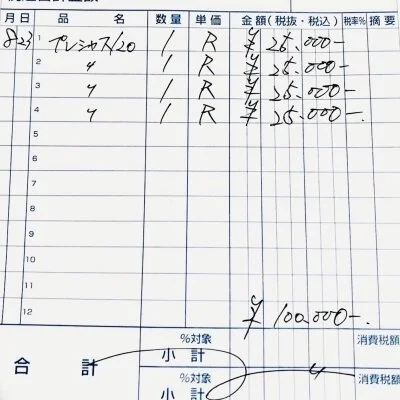 月 日 品 名 数量 単価 金額(税抜・税込) 税率% 摘要
8 23 1 プレシャス120 1 R ¥25.000-
2 〃 1 R ¥25.000-
3 〃 1 R ¥25.000-
4 〃 1 R ¥25.000-.
5
6
7
8
9
10
11
12 ¥100.000-.
合 計 %対象 小 計 消費税額
%対象 小 計 〃 消費税額